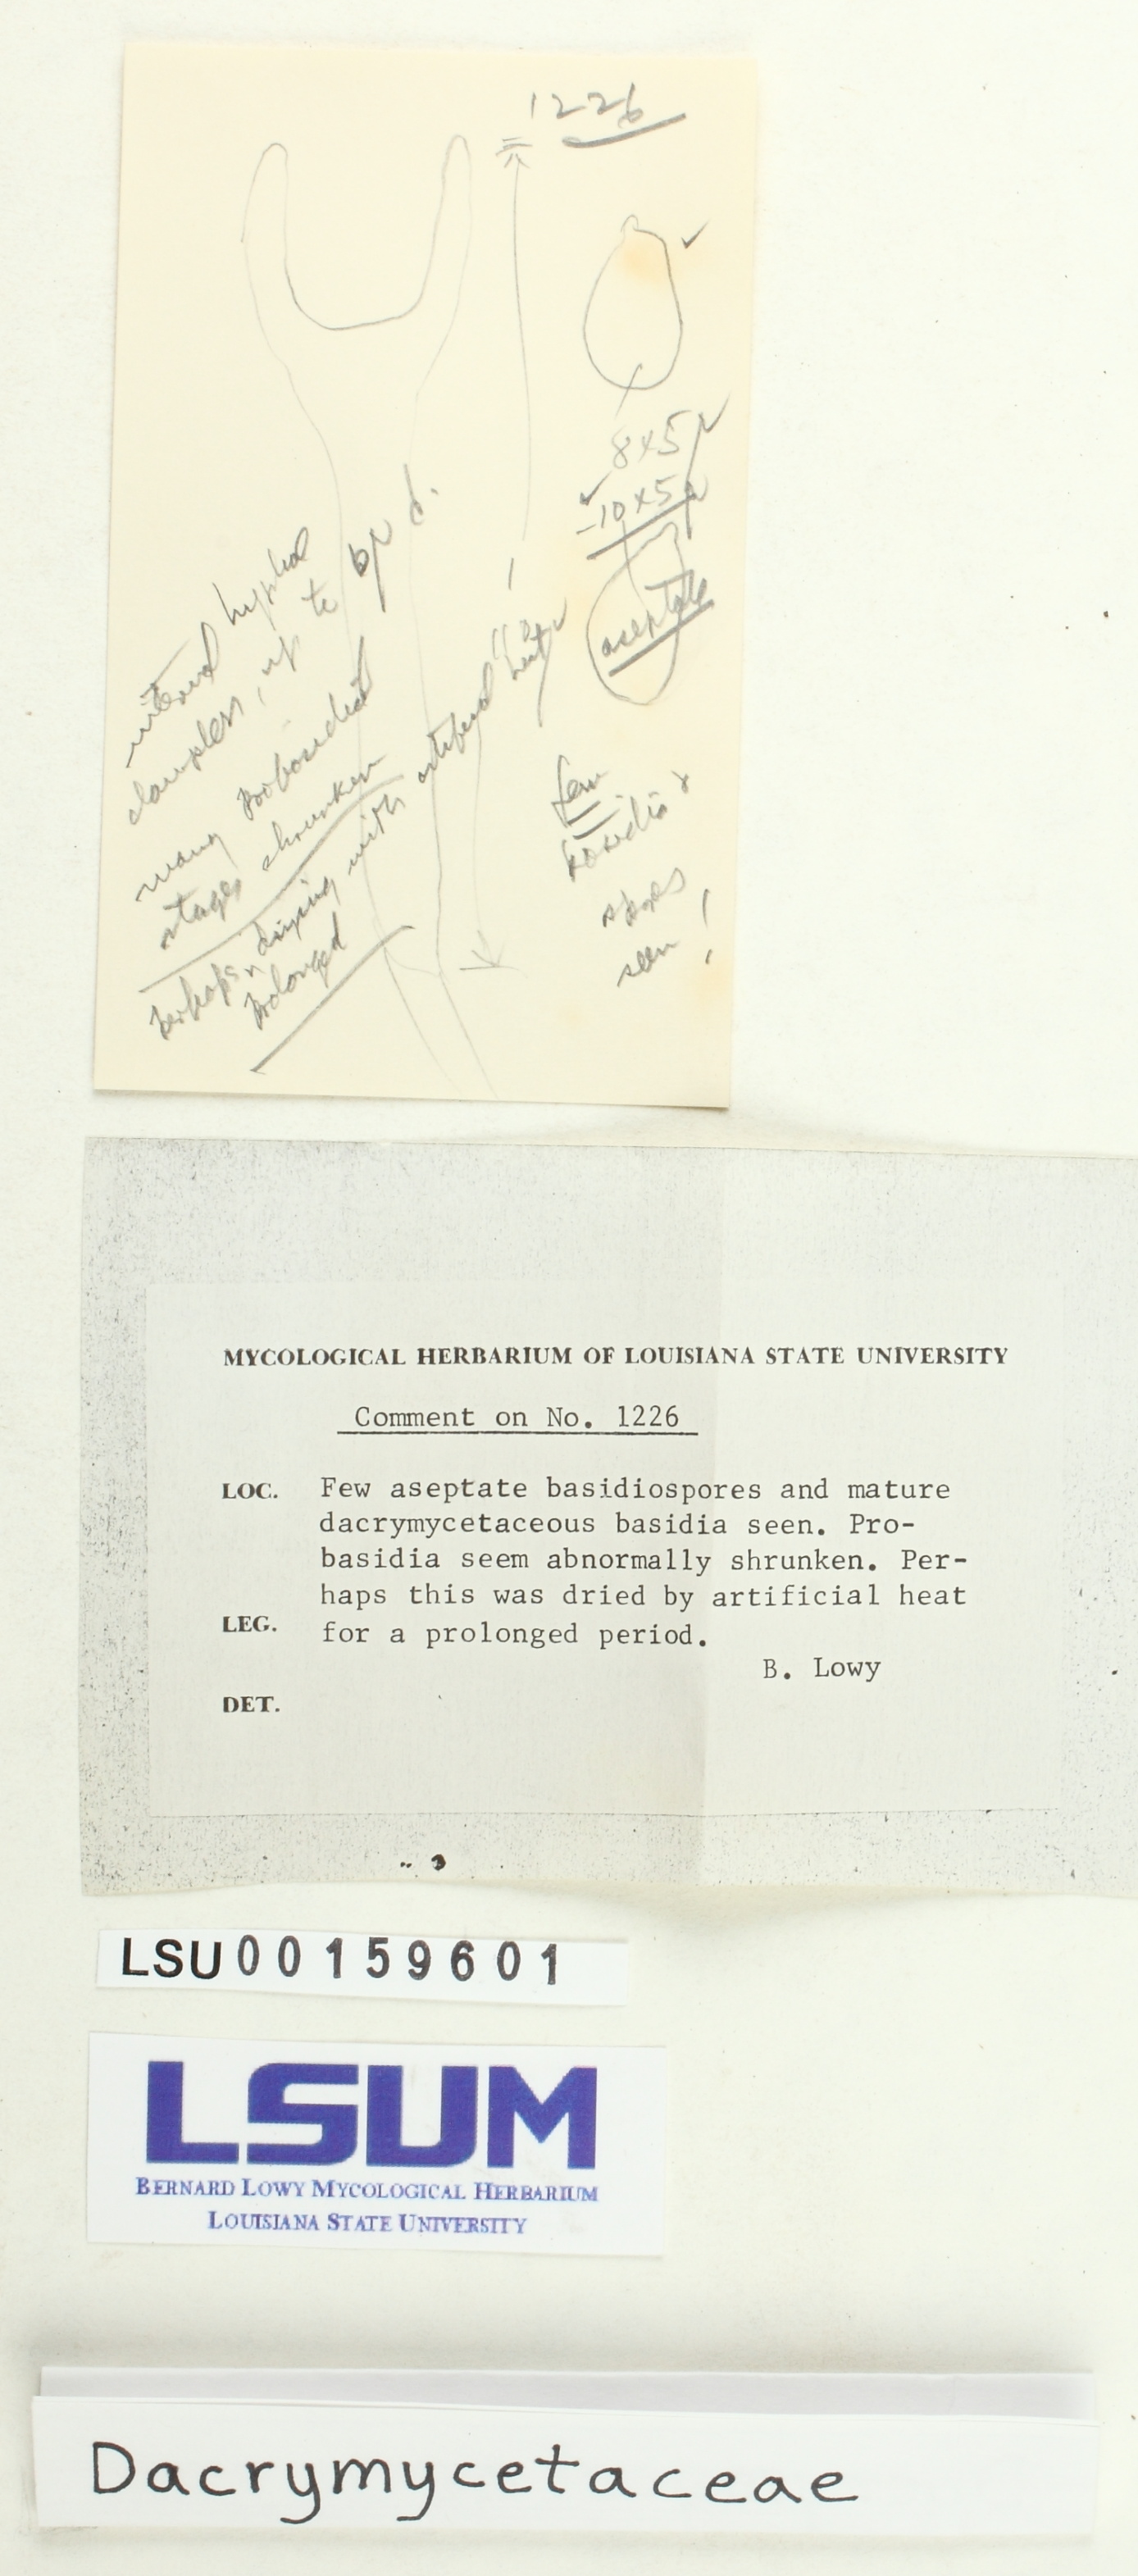 1226
8x5μ
-10x5μ
aseptate
internal hyphal
clampless, up to 6μ d.
many probasidial
stages shrunken
perhaps drying with artificial heat,
prolonged
few
basidia &
spores
seen!
MYCOLOGICAL HERBARIUM OF LOUISIANA STATE UNIVERSITY
Comment on No. 1226
LOC. Few aseptate basidiospores and mature
dacrymycetaceous basidia seen. Pro-
basidia seem abnormally shrunken. Per-
haps this was dried by artificial heat
LEG. for a prolonged period.
B. Lowy
DET.
LSU00159601
LSUM
BERNARD LOWY MYCOLOGICAL HERBARIUM
LOUISIANA STATE UNIVERSITY
Dacrymycetaceae